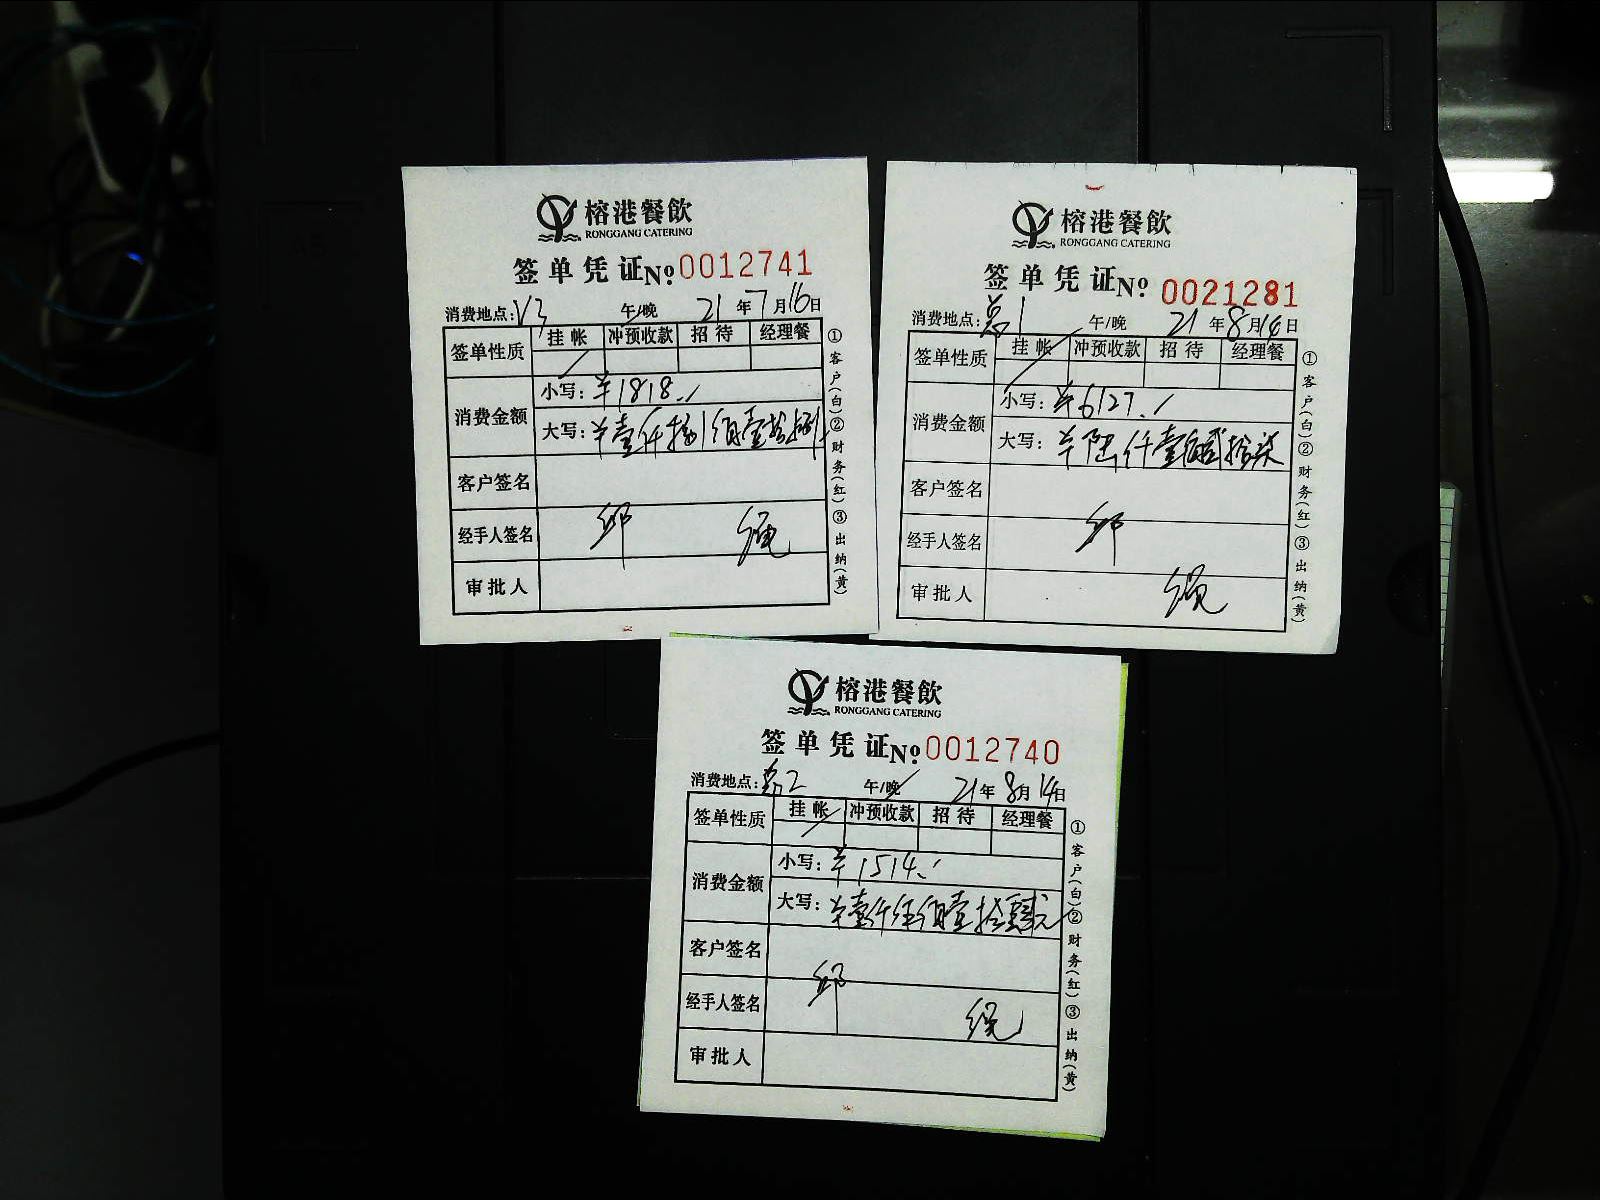 榕港餐飲
RONGGANG CATERING
签单凭证 No. 0012741
消费地点: V3 午/晚 21年7月16日
签单性质 挂帐 冲预收款 招待 经理餐
消费金额 小写: ¥1818.
大写: 壹仟捌佰壹拾捌
客户签名
经手人签名 邱
审批人
①客户(白)②财务(红)③出纳(黄)
榕港餐飲
RONGGANG CATERING
签单凭证 No. 0021281
消费地点: 1 午/晚 21年8月14日
签单性质 挂帐 冲预收款 招待 经理餐
消费金额 小写: ¥6127.
大写: 陆仟壹佰贰拾柒
客户签名
经手人签名 邱
审批人
①客户(白)②财务(红)③出纳(黄)
榕港餐飲
RONGGANG CATERING
签单凭证 No. 0012740
消费地点: 2 午/晚 21年8月14日
签单性质 挂帐 冲预收款 招待 经理餐
消费金额 小写: ¥1514.
大写: 壹仟伍佰壹拾肆元
客户签名
经手人签名 邱
审批人
①客户(白)②财务(红)③出纳(黄)